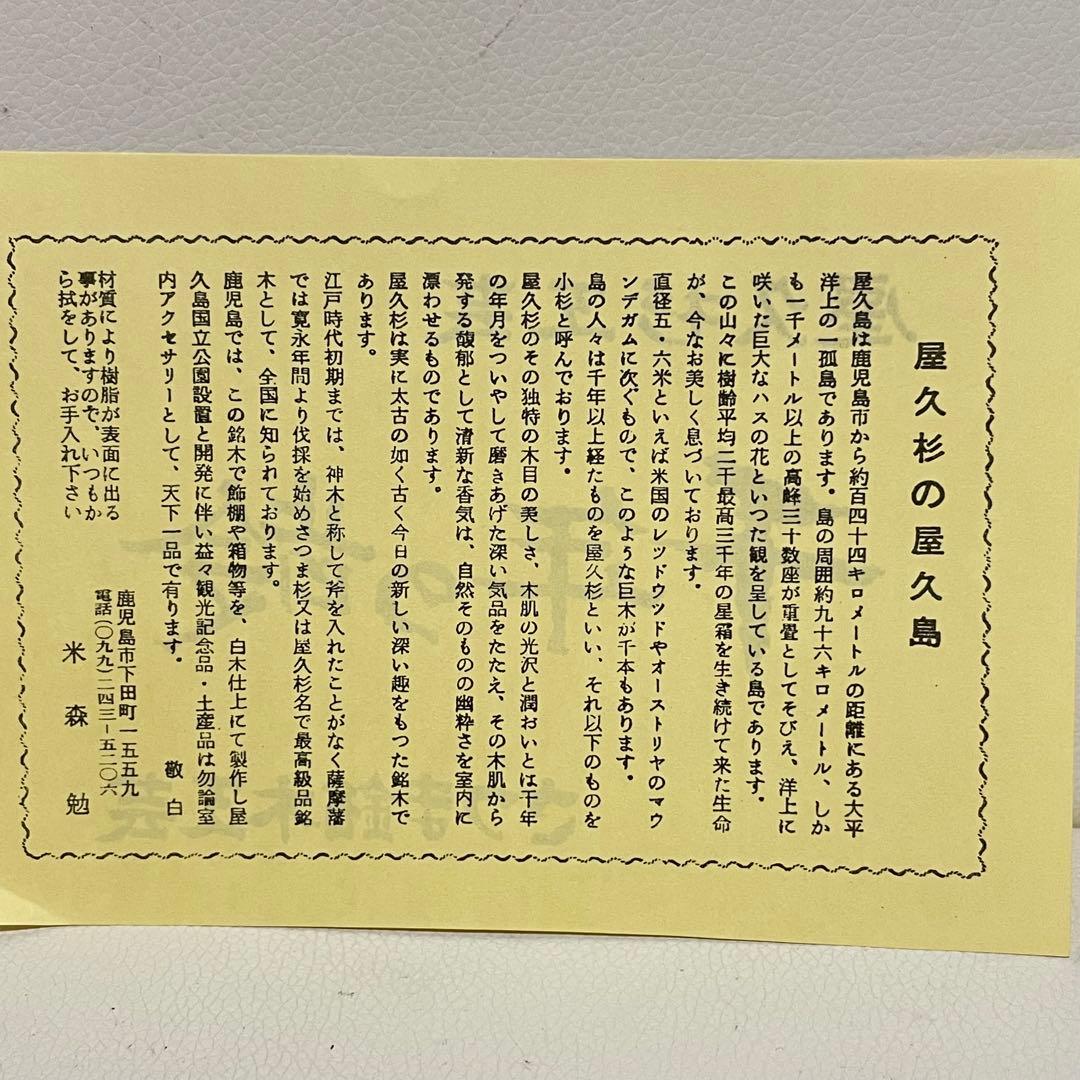 屋久杉の屋久島
屋久島は鹿児島市から約百四十四キロメートルの距離にある大平
洋上の一孤島であります。島の周囲約九十六キロメートル、しか
も一千メートル以上の高峰三十数座が重畳としてそびえ、洋上に
咲いた巨大なハスの花といつた観を呈している島であります。
この山々に樹齢平均二千最高三千年の星霜を生き続けて来た生命
が、今なお美しく息づいております。
直径五・六米といえば米国のレッドウッドやオーストリヤのマウ
ンデガムに次ぐもので、このような巨木が千本もあります。
島の人々は千年以上経たものを屋久杉といい、それ以下のものを
小杉と呼んでおります。
屋久杉のその独特の木目の美しさ、木肌の光沢と潤おいとは千年
の年月をついやして磨きあげた深い気品をたたえ、その木肌から
発する馥郁として清新な香気は、自然そのものの幽粋さを室内に
漂わせるものであります。
屋久杉は実に太古の如く古く今日の新しい深い趣をもつた銘木で
あります。
江戸時代初期までは、神木と称して斧を入れたことがなく薩摩藩
では寛永年間より伐採を始めさつま杉又は屋久杉名で最高級品銘
木として、全国に知られております。
鹿児島では、この銘木で飾棚や箱物等を、白木仕上にて製作し屋
久島国立公園設置と開発に伴い益々観光記念品・土産品は勿論室
内アクセサリーとして、天下一品で有ります。
敬白
鹿児島市下田町一五五九
電話(〇九九)二四三−五二〇六
米森勉
材質により樹脂が表面に出る
事がありますので、いつもか
ら拭をして、お手入れ下さい